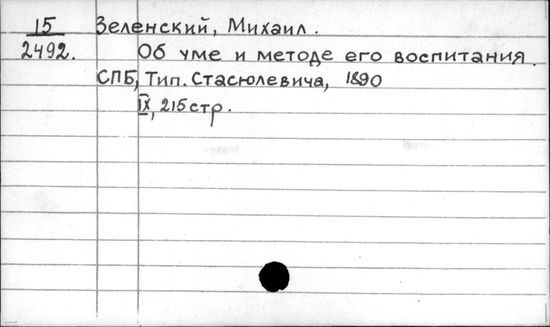 15 Зеленский, Михаил.
2492. Об уме и методе его воспитания.
СПБ, Тип. Стасюлевича, 1890
IX, 215 стр.